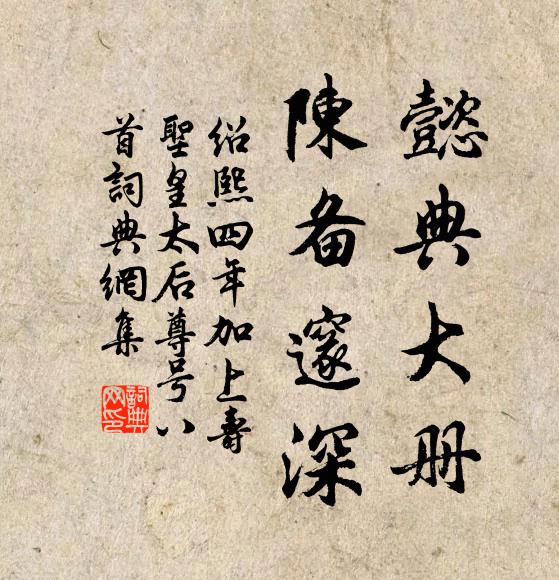 懿典大册
陳备邃深
绍熙四年加上壽
聖皇太后尊号八
首詞典網集
詞典
网印